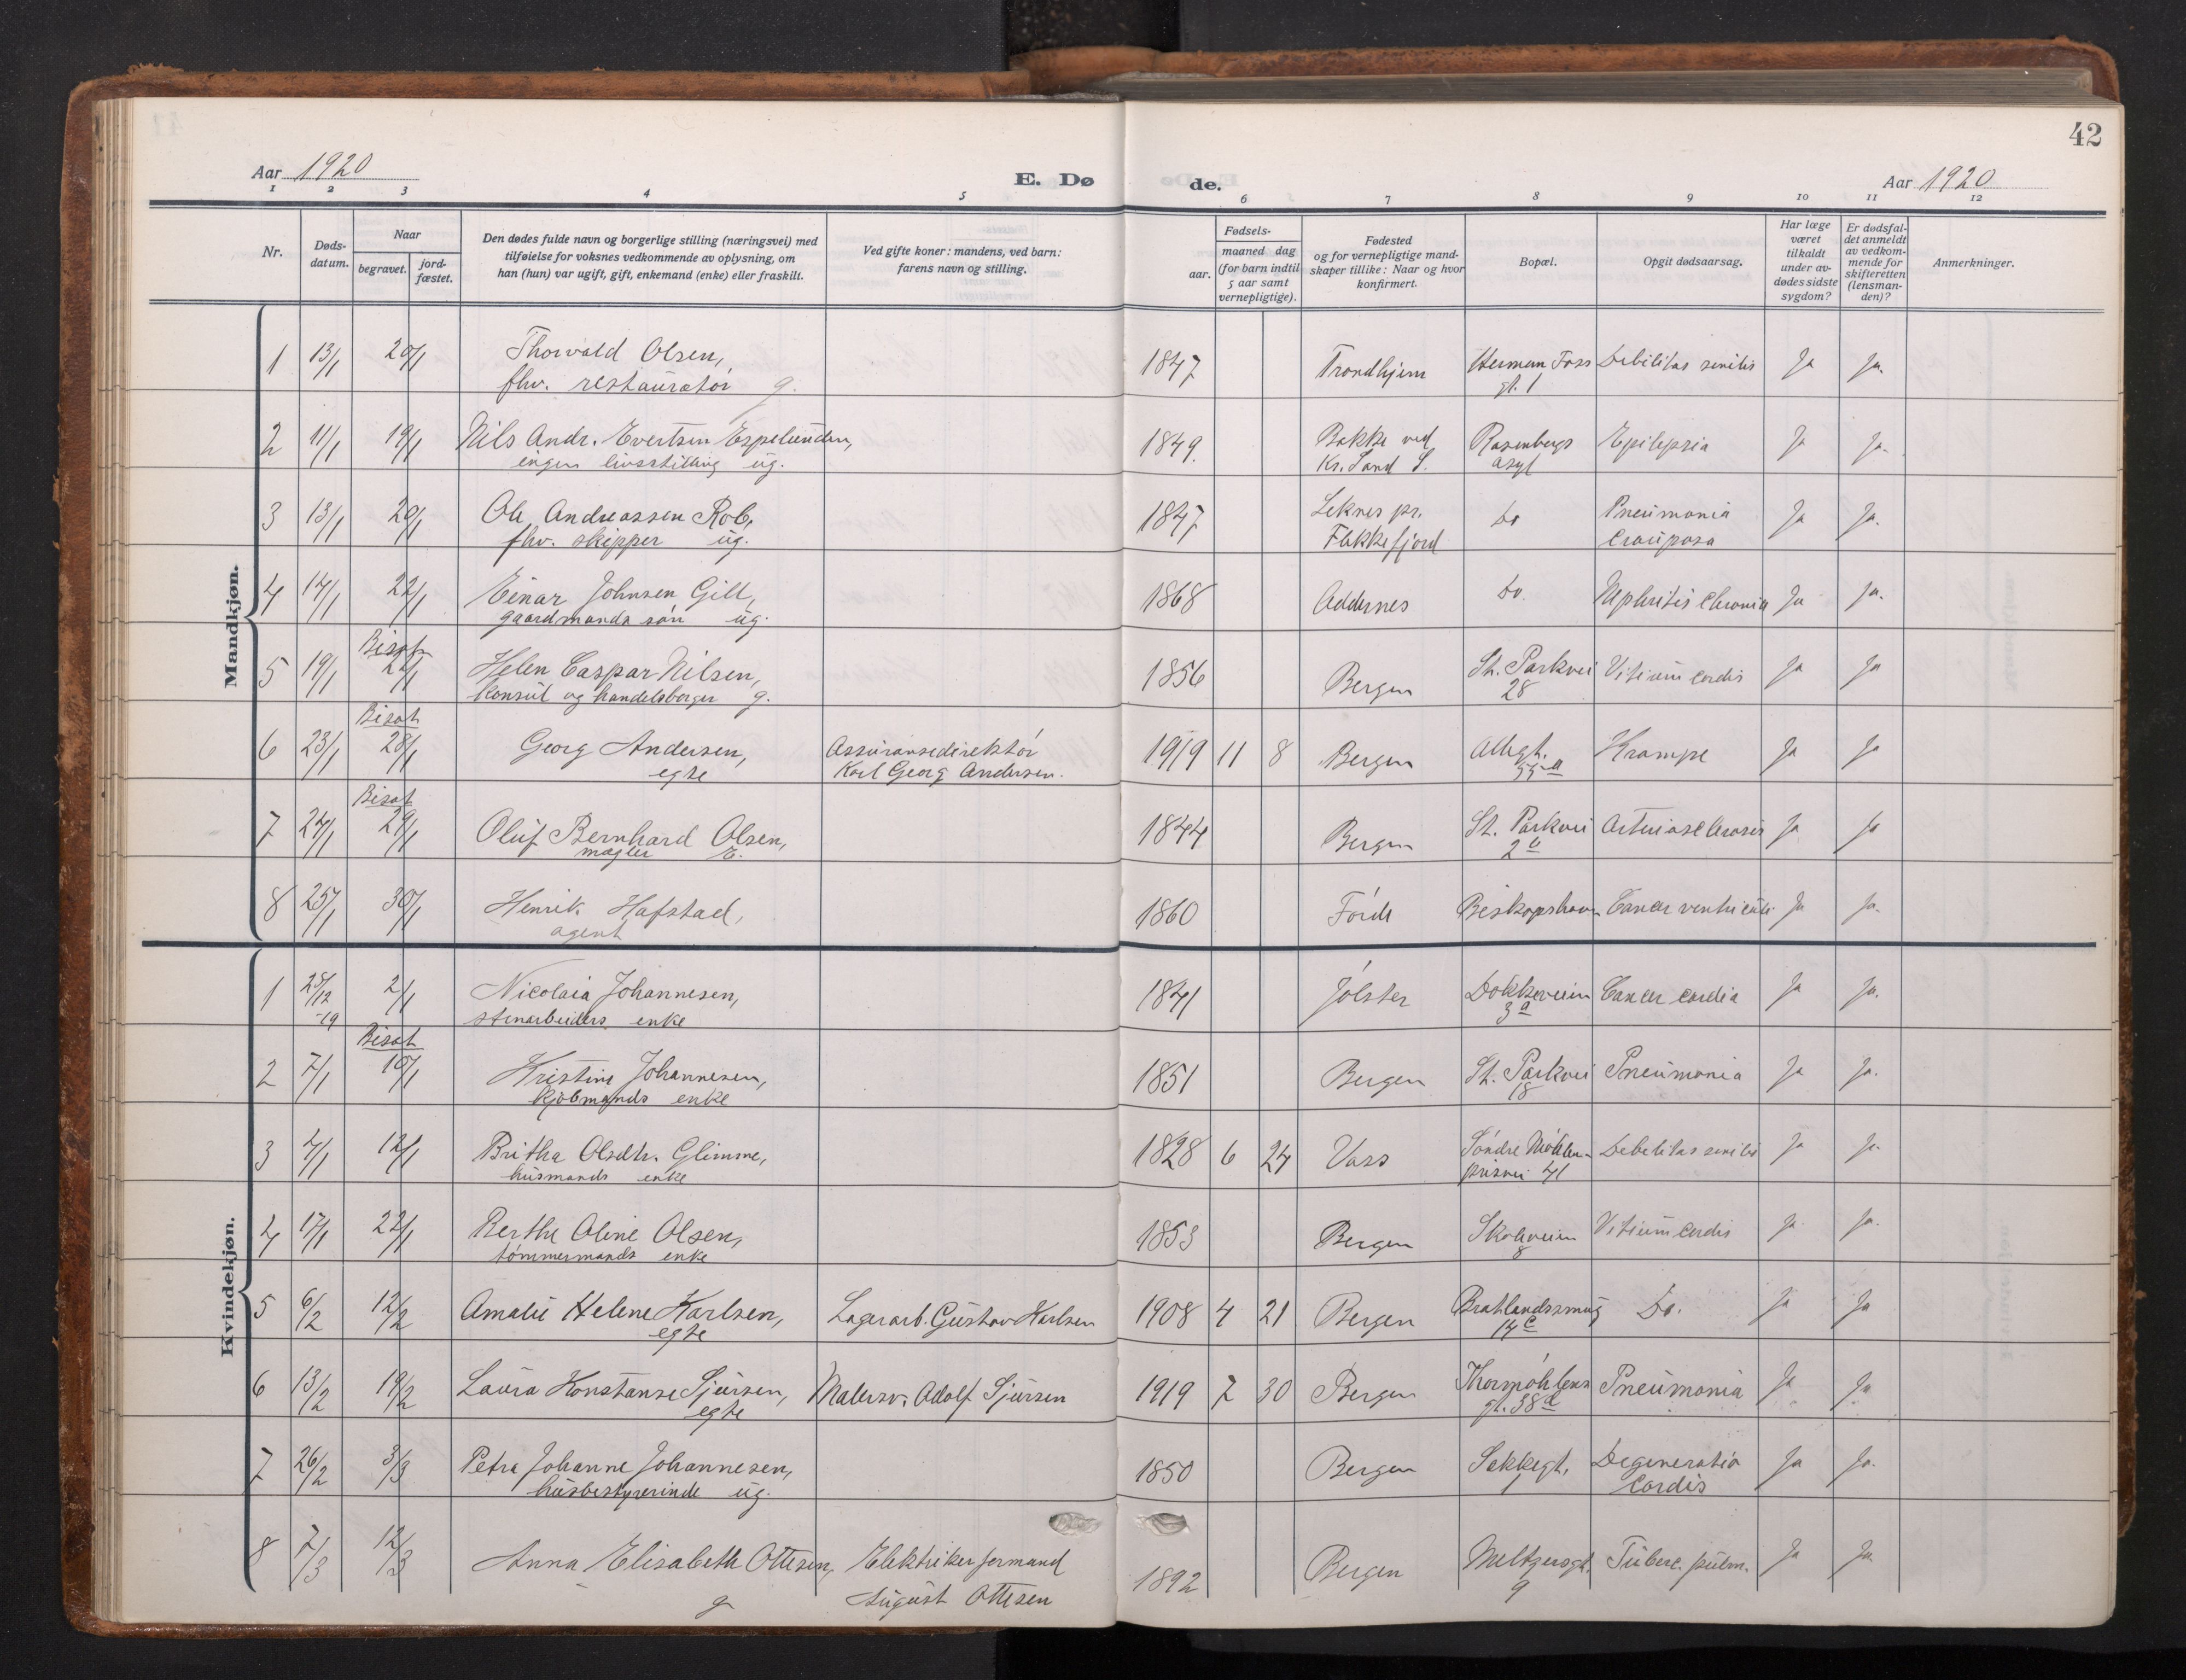 42
Aar 1920
E. Dø
de.
Aar 1920
1 2 3 4 5 6 7 8 9 10 11 12
Nr.
Døds-
datum.
Naar
begravet.
jord-
fæstet.
Den dødes fulde navn og borgerlige stilling (næringsvei) med
tilføielse for voksnes vedkommende av oplysning, om
han (hun) var ugift, gift, enkemand (enke) eller fraskilt.
Ved gifte koner: mandens, ved barn:
farens navn og stilling.
Fødsels-
aar.
maaned dag
(for barn indtil
5 aar samt
vernepligtige).
Fødested
og for vernepligtige mand-
skaper tillike: Naar og hvor
konfirmert.
Bopæl.
Opgit dødsaarsag.
Har læge
været
tilkaldt
under av-
dødes sidste
sygdom?
Er dødsfal-
det anmeldt
av vedkom-
mende for
skifteretten
(lensman-
den)?
Anmerkninger.
Mandkjøn.
1 13/1 20/1 Thorvald Olsen, 1847 Trondhjem Herman Foss Debilitas senilis Ja Ja.
fhv. restauratør g. gt. 1
2 11/1 19/1 Nils Andr. Evertsen Espelunden, 1849. Bakke ved Rosenbergs Epilepsia Ja Ja.
ingen livsstilling ug. Kr. Sand S. asyl
3 13/1 20/1 Ole Andreassen Rob, 1847 Leknes pr. Do Pneumonia Ja Ja.
fhv. skipper ug. Flekkefjord Crouposa
4 14/1 22/1 Einar Johnsen Gill, 1868 Oddernes Do. Nephritis Chronia Ja Ja.
gaardmands søn ug.
Bisat
5 19/1 24/1 Helen Caspar Nilsen, 1856 Bergen St. Parkvei Vitium Cordis Ja Ja
Konsul og handelsborger g. 28
Bisat
6 23/1 28/1 Georg Andersen, Assuransedirektør 1919 11 8 Bergen Allegt. Krampe Ja Ja
egte Karl Georg Andersen. 55a
Bisat
7 24/1 29/1 Oluf Bernhard Olsen, 1844 Bergen St. Parkvei Arteriosclerosis Ja Ja
mægler E. 2b
8 25/1 30/1 Henrik Hafstad, 1860 Førde Biskopshavn Cancer ventriculi Ja Ja.
agent
Kvindekjøn.
1 28/12 2/1 Nicolaia Johannesen, 1841 Jølster Dokkeveien Cancer cardia Ja Ja.
-19 stenarbeiders enke 3a
Bisat
2 7/1 10/1 Kristine Johannesen, 1851 Bergen St. Parkvei Pneumonia Ja Ja.
kjøbmands enke 18
3 4/1 12/1 Britha Olsdtr. Glimme, 1828 6 24 Vass Søndre Møhlen- Debilitas senilis Ja Ja.
husmands enke prisvei 41
4 17/1 22/1 Berthe Oline Olsen, 1853 Bergen Skoleveien Vitium Cordis Ja Ja.
tømmermands enke 8
5 6/2 12/2 Amalie Helene Karlsen, Lagerarb. Gustav Karlsen 1908 4 21 Bergen Bratlandssmug Do. Ja Ja
egte 14c
6 13/2 19/2 Laura Konstanse Sjursen, Malersv. Adolf Sjursen 1919 7 30 Bergen Thormøhlens Pneumonia Ja Ja
egte gt. 38a
7 26/2 3/3 Petra Johanne Johannesen, 1850 Bergen Sekkegt. Degeneratio Ja Ja.
husbestyrerinde ug. 1 Cordis
8 7/3 12/3 Anna Elisabeth Ottesen, Elektriker formand 1892 Bergen Meltzersgt. Tuberc. pulm. Ja Ja.
g August Ottesen 9